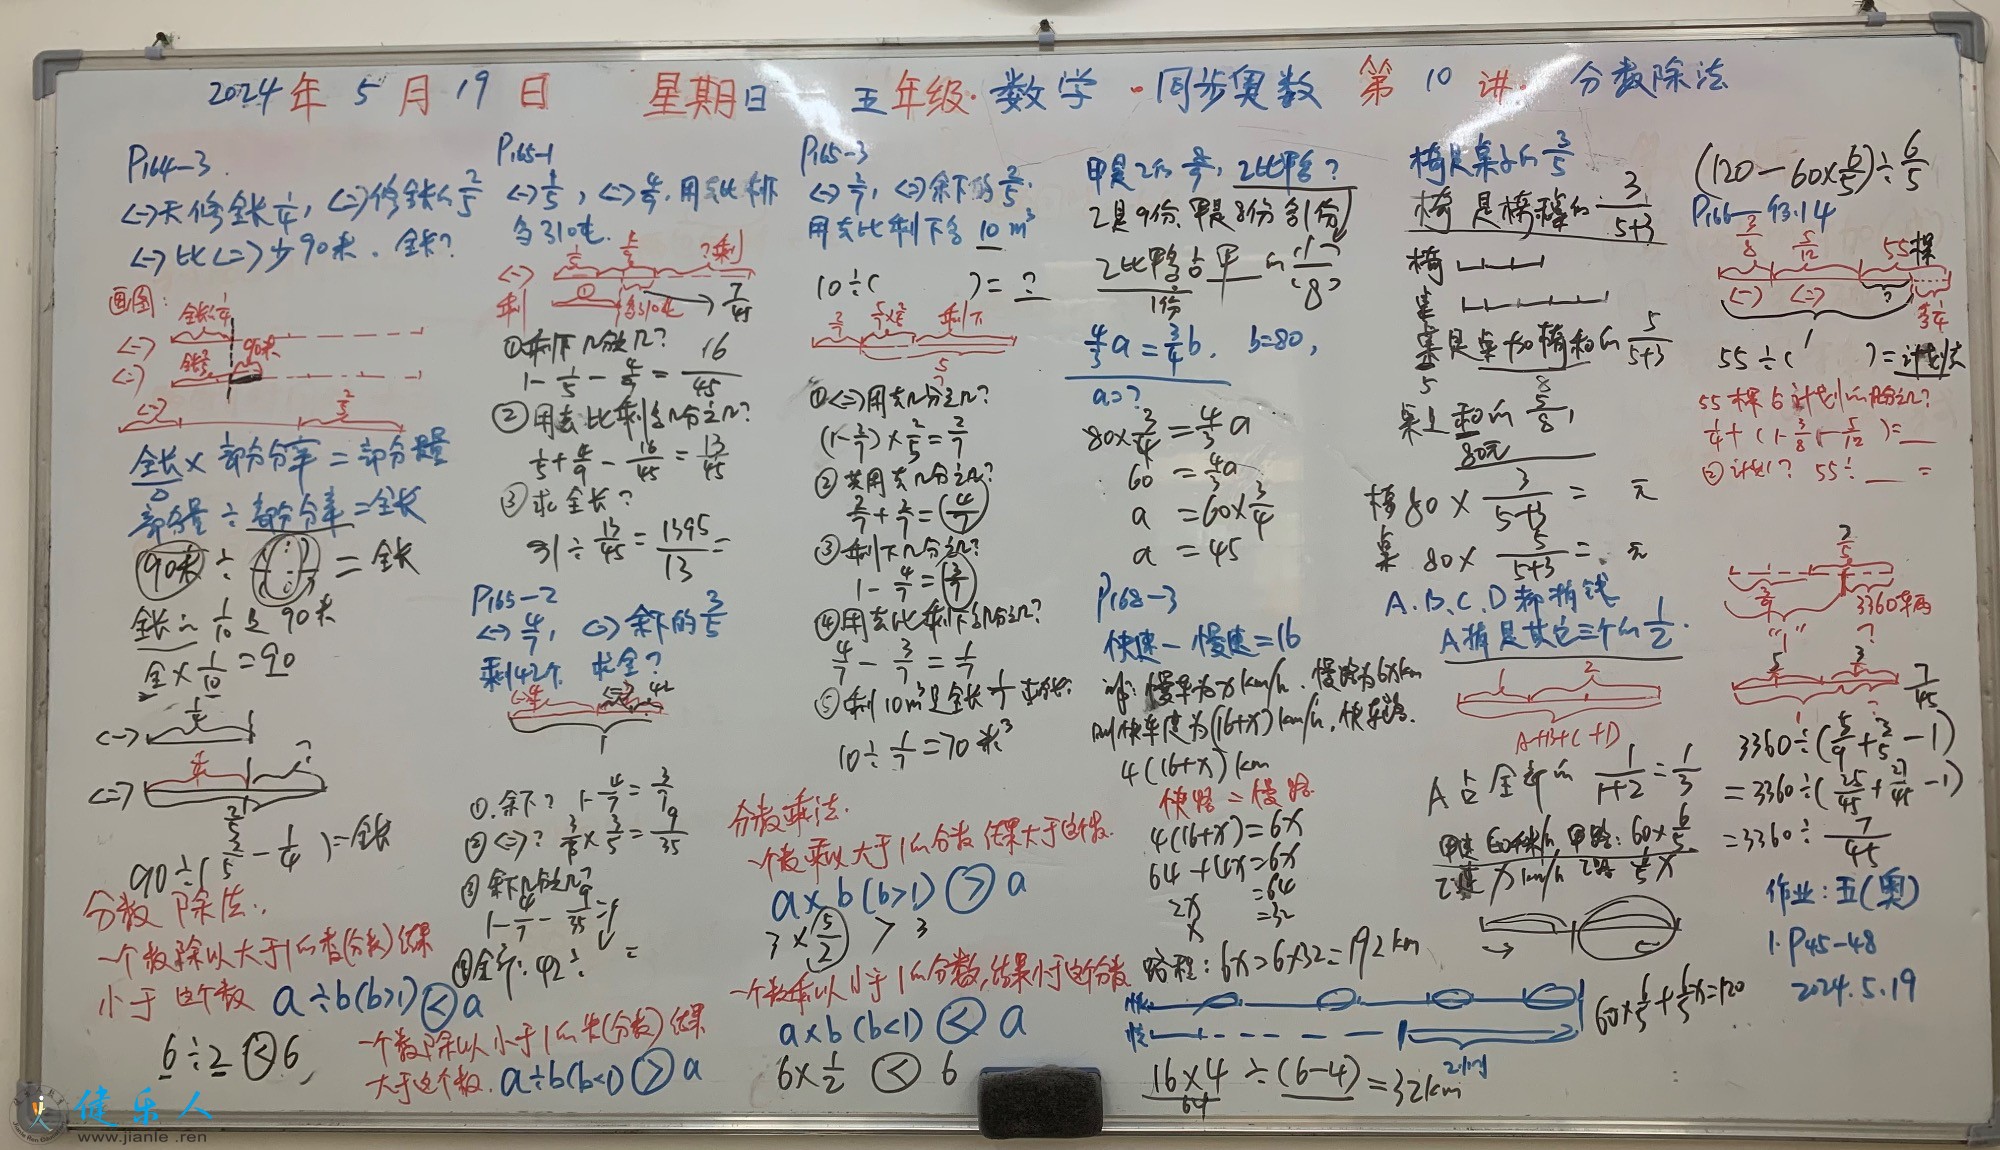 2024年5月19日 星期日 五年级·数学·同步奥数 第10讲·分数除法
P164-3
<一>天修全长1/4, <二>修全长的2/5
<一>比<二>少90米. 全长?
画图:
全长的1/4
<一>
90米
<二>
2/5
全长×部分分率=部分量
部分量÷部分分率=全长
90米÷ =全长
全长的1/10是90米
全×1/10=90
<一> 1/4
<二>
2/5
90÷(2/5-1/4)=全长
分数除法:
一个数除以大于1的数(分数)结果
小于这个数 a÷b(b>1)<a
6÷2<6
一个数除以小于1的数(分数)结果
大于这个数. a÷b(b<1)>a
P165-1
<一>1/5, <二>4/9, 用去比剩
多31吨.
?剩
7/45
①剩下几分之几?
1-1/5-4/9=16/45
②用去比剩多几分之几?
1/5+4/9-16/45=13/45
③求全长?
31÷13/45=1395/13=
P165-2
<一>4/7, <二>余下的3/5
剩42个. 求全?
1
①余下? 1-4/7=3/7
②<二>? ×3/5=9/35
③余下几分之几?
1-4/7-9/35=
④全部: 42÷ =
P165-3
<一>2/7, <二>余下的2/5.
用去比剩下多10m³
10÷( )=?
2/7 剩下
①<二>用去几分之几?
(1-2/7)×2/5=2/7
②共用去几分之几?
2/7+2/7=(4/7)
③剩下几分之几?
1-4/7=(3/7)
④用去比剩下多几分之几?
4/7-3/7=1/7
10÷1/7=70米³
分数乘法.
一个数乘以大于1的分数结果大于这个数.
a×b(b>1)>a
3×5/2>3
一个数乘以小于1的分数,结果小于这个分数
a×b(b<1)<a
6×1/2<6
甲是乙的8/9, 乙比甲多?
乙是9份, 甲是8份 多1份
乙比甲多占甲的1/8
1份
4/3a=3/4b. b=80,
a=?
80×3/4=4/3a
60=4/3a
a=60×3/4
a=45
P168-3
快速-慢速=16
设:慢车为xkm/h, 慢路为6xkm
则快车度为(16+x)km/h, 快车路.
4(16+x)km
快路=慢路
4(16+x)=6x
64+4x=6x
2x=64
x=32
路程:6x=6×32=192km
16×4÷(6-4)=32km
64
椅是桌子的3/5
椅是椅桌的3/(5+3)
椅
桌
桌是桌和椅和的5/(5+3)
5 8
桌是和的5/8,
80元
椅80×3/(5+3)= 元
桌 80×5/(5+3)= 元
A.B.C.D都捐钱
A捐是其它三个的1/2.
1 2
A+B+C+D
A占全部的1/(1+2)=1/3
甲速60千米/h, 甲路:60×6/5
乙速xkm/h 乙路 6/5x
60×6/5+6/5x=120
(120-60×6/5)÷6/5
3/8 5/12 55棵
<一> <二> ?
1
55÷( )=计划
55棵占计划的几分之几?
1/4+(1-3/8-5/12)=
②计划? 55÷ =
3360辆
"1"
7/45
3360÷(5/9+3/5-1)
=3360÷(25/45+27/45-1)
=3360÷7/45
作业:五(奥)
1.P45-48
2024.5.19
健乐人
www.jianle.ren